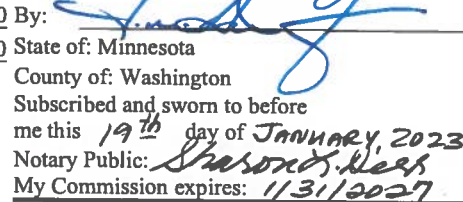 0 By:
0 State of: Minnesota
County of: Washington
Subscribed and sworn to before
me this 19th day of JANUARY, 2023
Notary Public: Sharon
My Commission expires: 1/31/2027